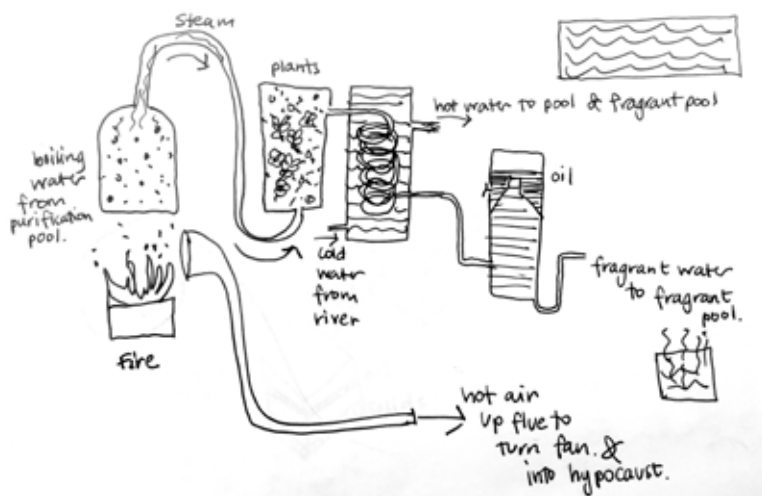 Steam
plants
hot water to pool & fragrant pool
boiling
water
from
purification
pool.
oil
cold
water
from
river
fragrant water
to fragrant
pool.
Fire
hot air
up flue to
turn fan. &
into hypocaust.